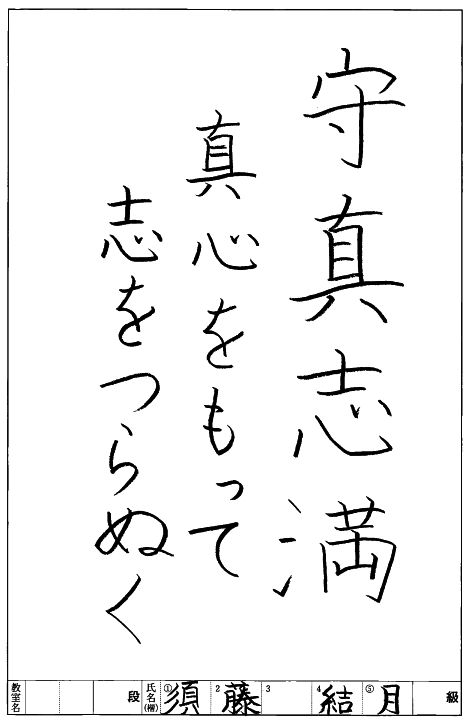 守真志満
真心をもって
志をつらぬく
教室名 段 氏名(楷) ① 須 2 藤 3 4 結 ⑤ 月 級